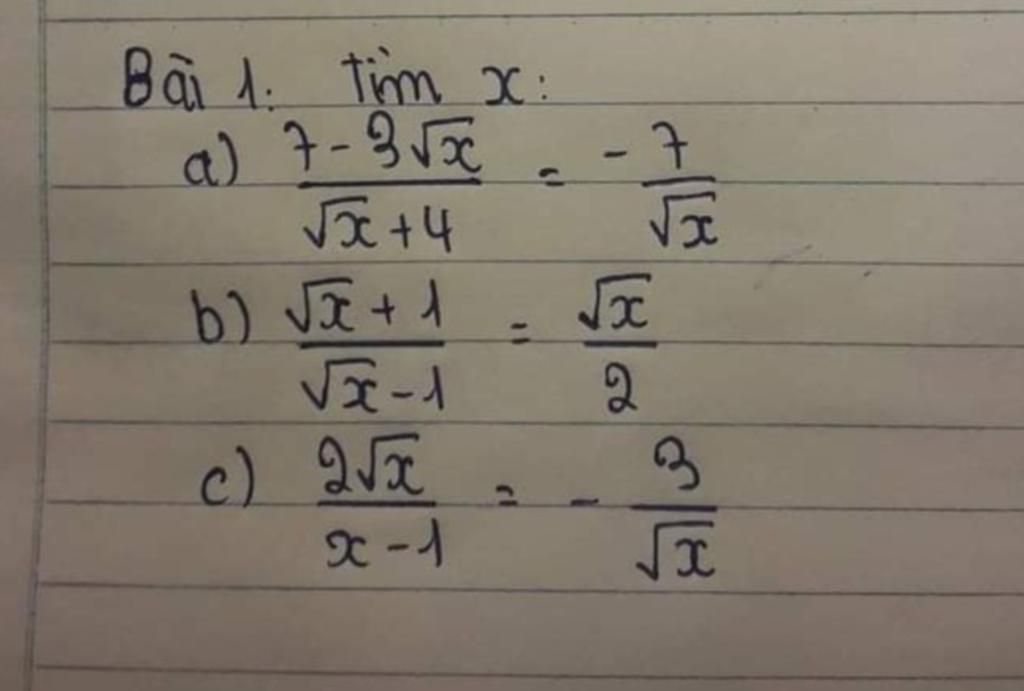 Bài 1. Tìm x:
a) (7 - 3√x)/(√x + 4) = -7/√x
b) (√x + 1)/(√x - 1) = √x/2
c) 2√x/(x - 1) = - 3/√x